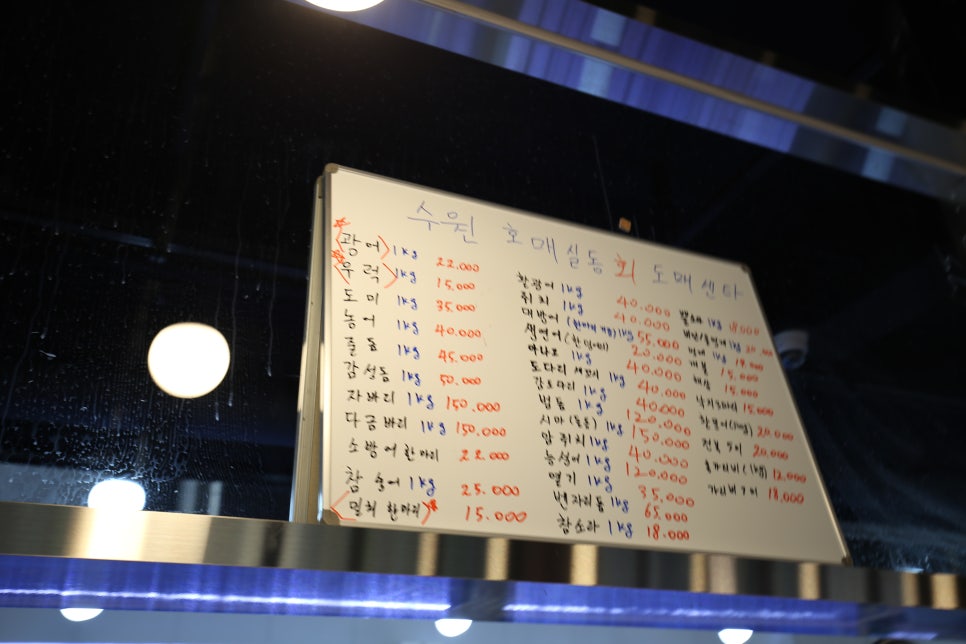 수원 호매실동 회 도매센타
광어 1kg 22.000
우럭 1kg 15.000
도미 1kg 35.000
농어 1kg 40.000
줄돔 1kg 45.000
감성돔 1kg 50.000
자바리 1kg 150.000
다금바리 1kg 150.000
소방어 한마리 22.000
참숭어 1kg 25.000
밀치 한마리 15.000
찰광어 1kg 40.000
쥐치 1kg 40.000
대방어 1kg 55.000
생연어 20.000
아나고 1kg 40.000
도다리 세꼬시 1kg 40.000
강도다리 1kg 40000
범돔 1kg 120.000
시마 (돌돔) 1kg 150.000
암쥐치 1kg 40.000
능성어 1kg 120.000
열기 1kg 35.000
벤자리돔 1kg 65.000
참소라 1kg 18.000
1kg 18000
1kg 20.000
멍게 1kg 18.000
개불 15.000
해삼 15.000
낙지 15.000
20,000
전복 5미 20,000
홍가리비 (1kg) 12,000
가리비 18,000